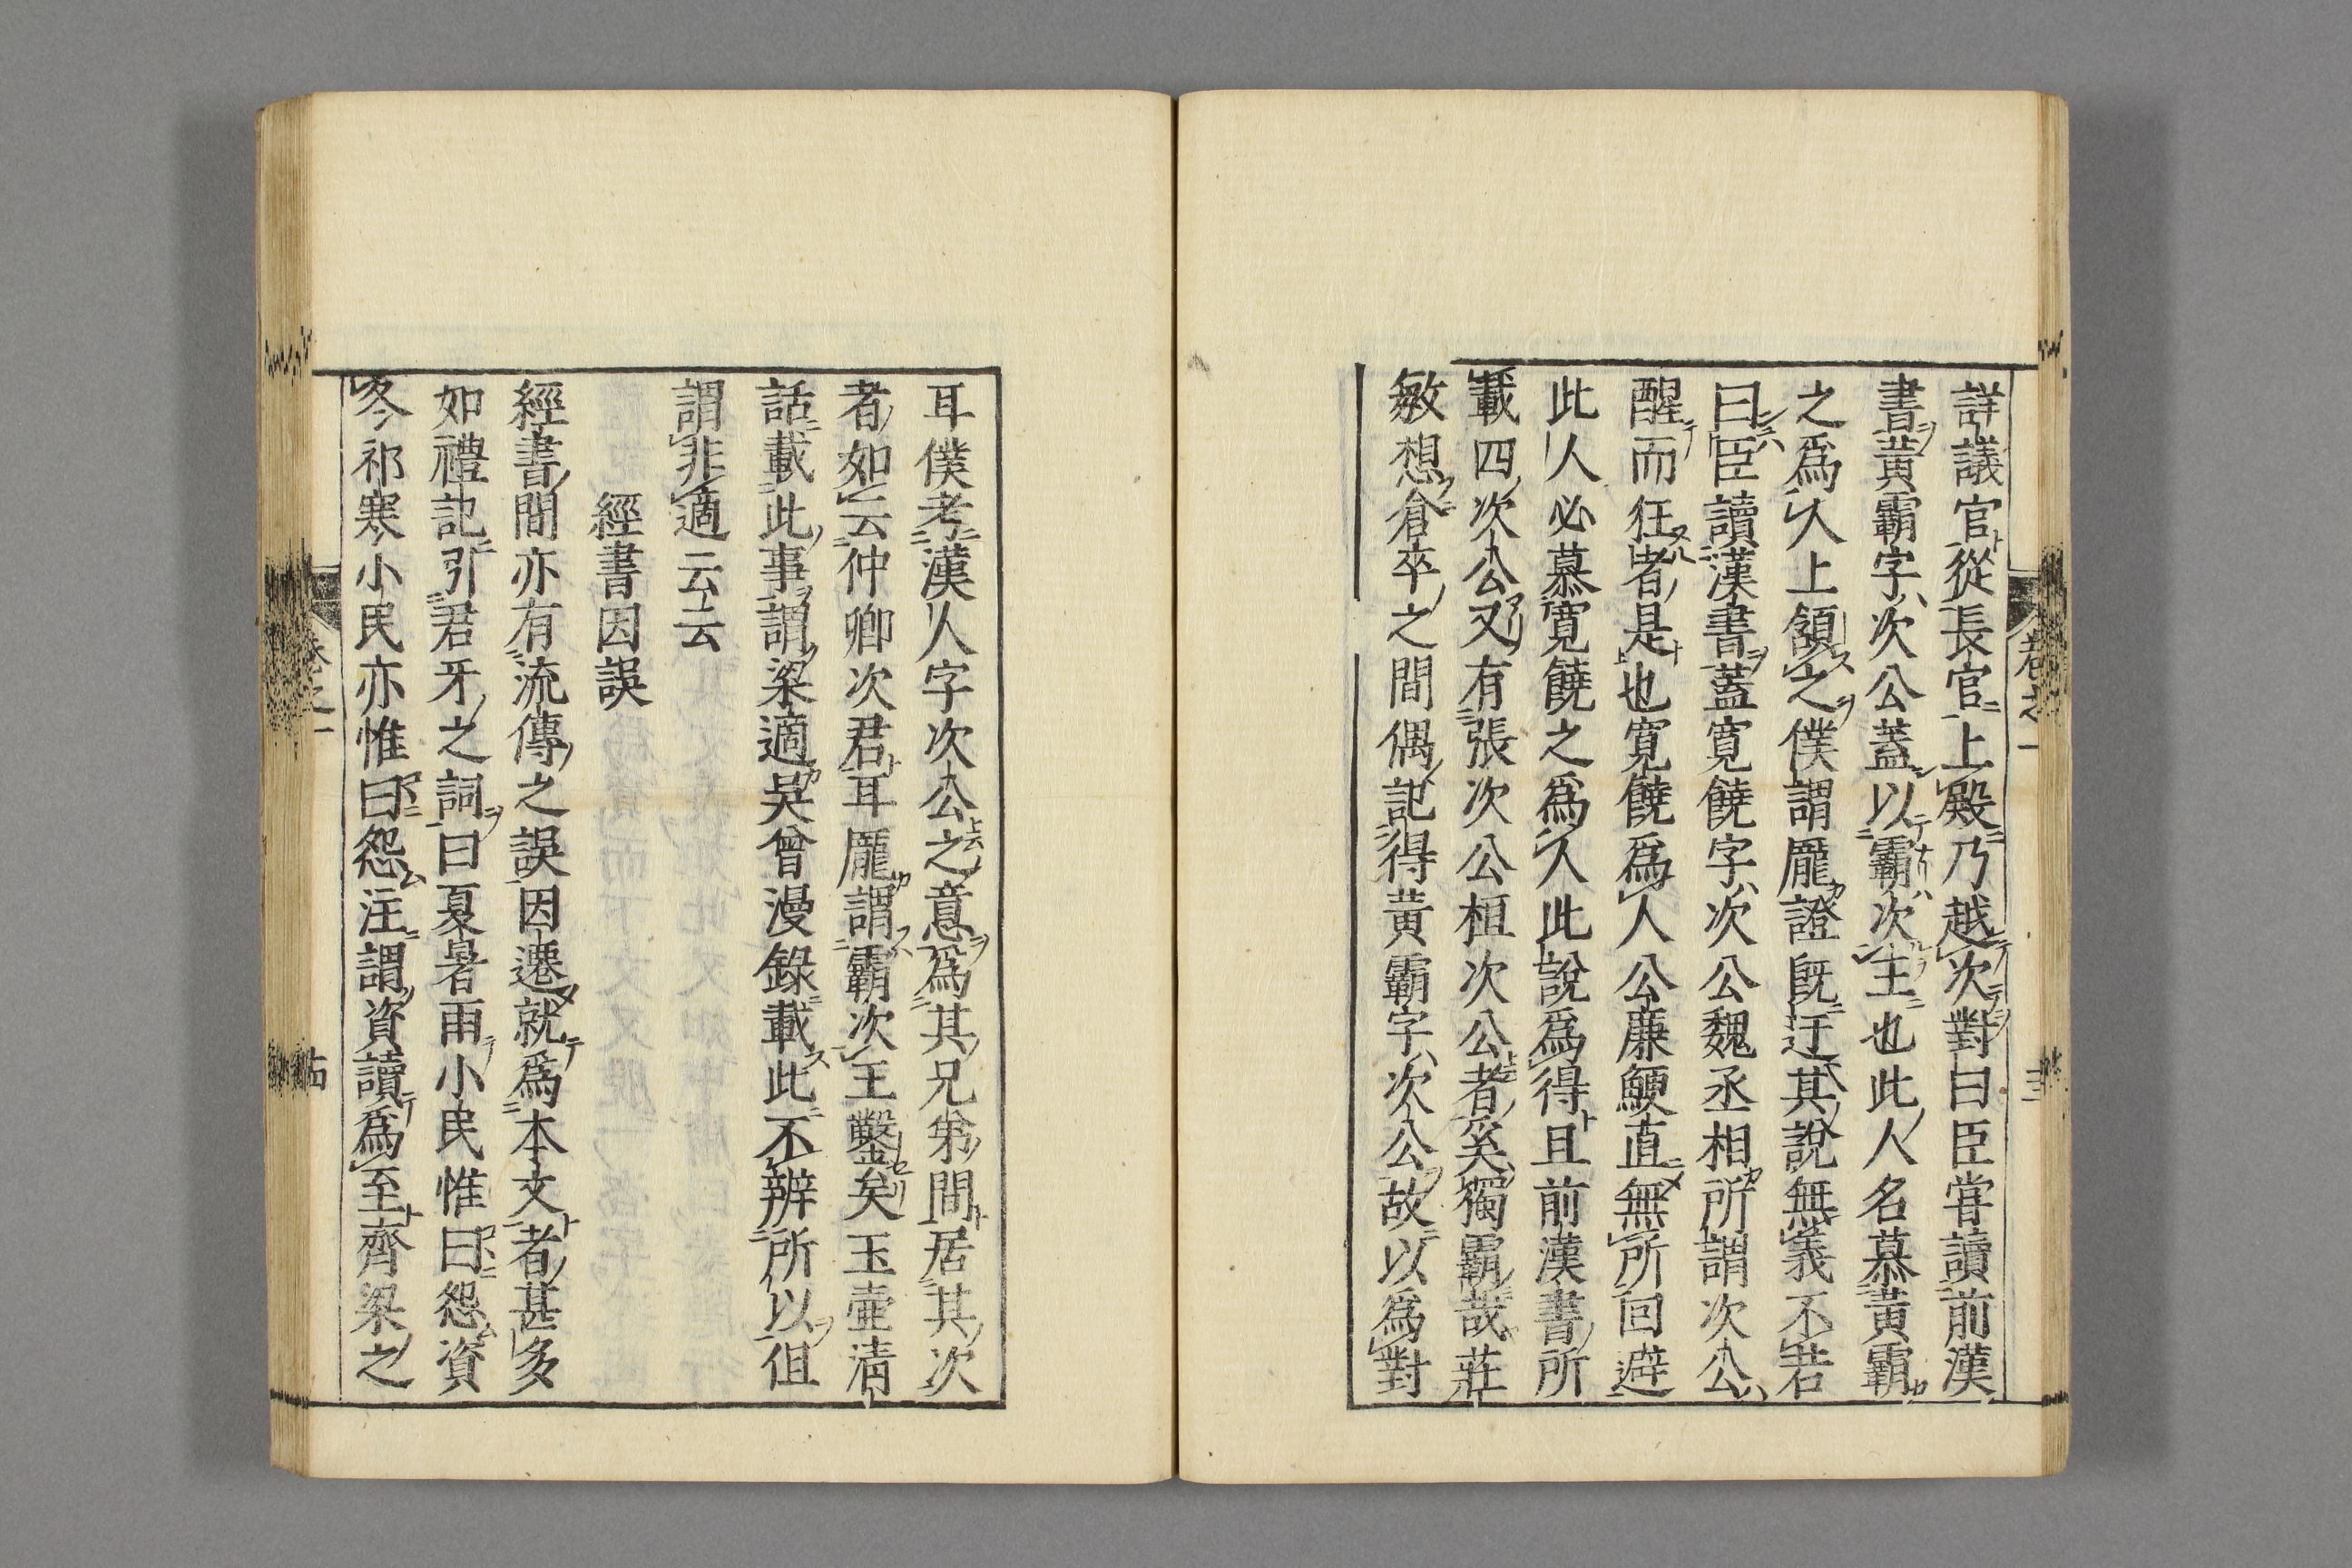 詳議官從長官上殿乃越次對曰臣甞讀前漢
書黃霸字次公蓋以霸次王也此人名慕黃霸
之爲人上頷之僕謂龎證旣迂其說無義不若
曰臣讀漢書蓋寛饒字次公魏丞相所謂次公
醒而狂者是也寛饒爲人公廉鯁直無所回避
此人必慕寛饒之爲人此說爲得且前漢書所
載四次公又有張次公桓次公者矣獨霸哉莊
敏想倉卒之間偶記得黃霸字次公故以爲對
耳僕考漢人字次公之意爲其兄弟間居其次
者如云仲卿次君耳龎謂霸次王鑿矣玉壷清
話載此事謂梁適吳曾漫錄載此不辨所以徂
謂非適云云
經書因誤
經書間亦有流傳之誤因遷就爲本文者甚多
如禮記引君牙之詞曰夏暑雨小民惟曰怨資
冬祁寒小民亦惟曰怨注謂資讀爲至齊梁之
卷之一